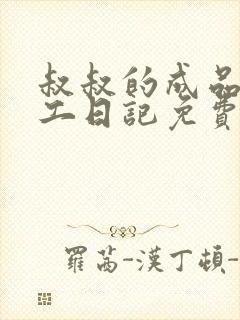 叔叔的成品
工日記免費
羅茜-漢丁頓-